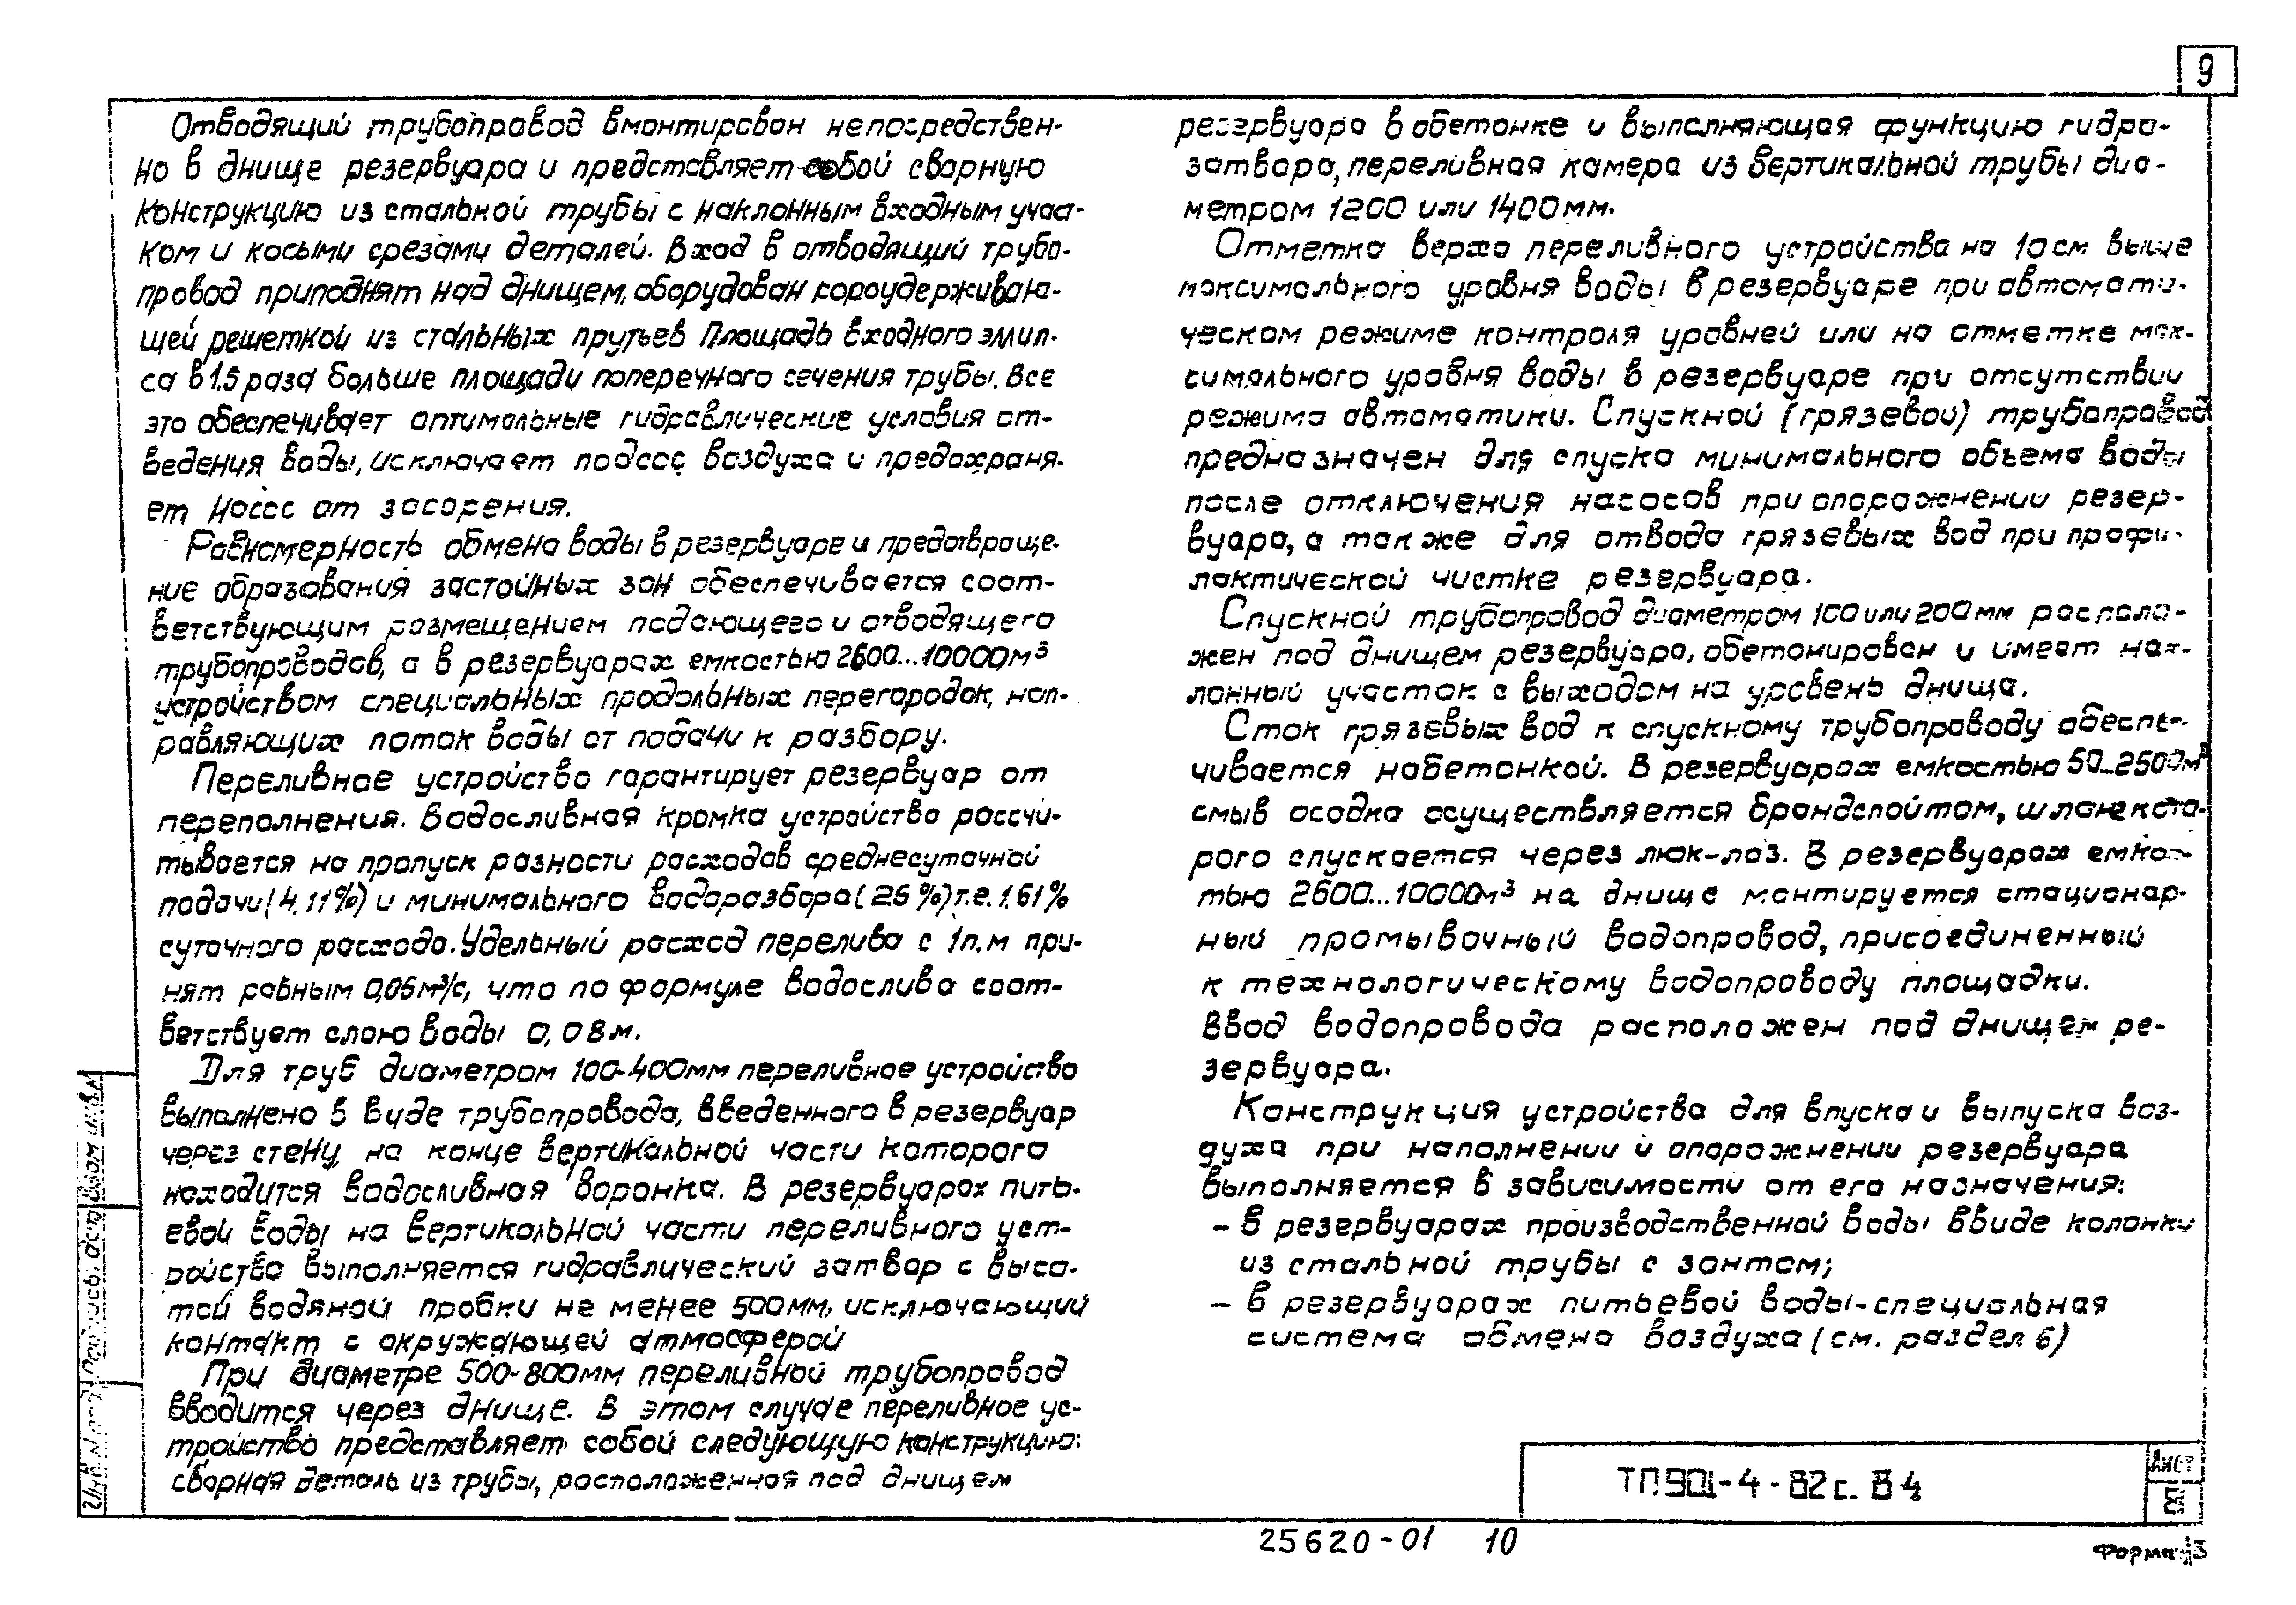 9
Отводящий трубопровод вмонтирован непосредствен-
но в днище резервуара и представляет собой сварную
конструкцию из стальной трубы с наклонным входным учас-
ком и косыми срезами деталей. Вход в отводящий трубо-
провод приподнят над днищем, оборудован сороудерживаю-
щей решеткой из стальных прутьев Площадь входного эллип-
са в 1.5 раза больше площади поперечного сечения трубы. Все
это обеспечивает оптимальные гидравлические условия от-
ведения воды, исключает подсос воздуха и предохраня-
ет насос от засорения.
Равномерность обмена воды в резервуаре и предотвраще-
ние образования застойных зон обеспечивается соот-
ветствующим размещением подающего и отводящего
трубопроводов, а в резервуарах емкостью 2600...10000м³
устройством специальных продольных перегородок, нап-
равляющих поток воды от подачи к разбору.
Переливное устройство гарантирует резервуар от
переполнения. Водосливная кромка устройства рассчи-
тывается на пропуск разности расходов среднесуточной
подачи (4,11%) и минимального водоразбора (2.5%) т.е. 1,61%
суточного расхода. Удельный расход перелива с 1п.м при-
нят равным 0,05м³/с, что по формуле водослива соот-
ветствует слою воды 0,08м.
Для труб диаметром 100-400мм переливное устройство
выполнено в виде трубопровода, введенного в резервуар
через стену, на конце вертикальной части которого
находится водосливная воронка. В резервуарах пить-
евой воды на вертикальной части переливного уст-
ройства выполняется гидравлический затвор с высо-
той водяной пробки не менее 500мм, исключающий
контакт с окружающей атмосферой
При диаметре 500-800мм переливной трубопровод
вводится через днище. В этом случае переливное ус-
тройство представляет собой следующую конструкцию:
сварная деталь из трубы, расположенная под днищем
резервуара в обетонке и выполняющая функцию гидро-
затвора, переливная камера из вертикальной трубы диа-
метром 1200 или 1400мм.
Отметка верха переливного устройства на 10см выше
максимального уровня воды в резервуаре при автомати-
ческом режиме контроля уровней или на отметке мак-
симального уровня воды в резервуаре при отсутствии
режима автоматики. Спускной (грязевой) трубопровод
предназначен для спуска минимального объема воды
после отключения насосов при опорожнении резер-
вуара, а также для отвода грязевых вод при профи-
лактической чистке резервуара.
Спускной трубопровод диаметром 100 или 200мм располо-
жен под днищем резервуара, обетонирован и имеет нак-
лонный участок с выходом на уровень днища.
Сток грязевых вод к спускному трубопроводу обеспе-
чивается набетонкой. В резервуарах емкостью 50...2500м³
смыв осадка осуществляется брандспойтом, шланг кото-
рого спускается через люк-лаз. В резервуарах емкос-
тью 2600...10000м³ на днище монтируется стационар-
ный промывочный водопровод, присоединенный
к технологическому водопроводу площадки.
Ввод водопровода расположен под днищем ре-
зервуара.
Конструкция устройства для впуска и выпуска воз-
духа при наполнении и опорожнении резервуара
выполняется в зависимости от его назначения:
- в резервуарах производственной воды ввиде колонки
из стальной трубы с зонтом;
- в резервуарах питьевой воды-специальная
система обмена воздуха (см. раздел 6)
ТП901-4-82с. В4
Лист
25620-01 10
Формат